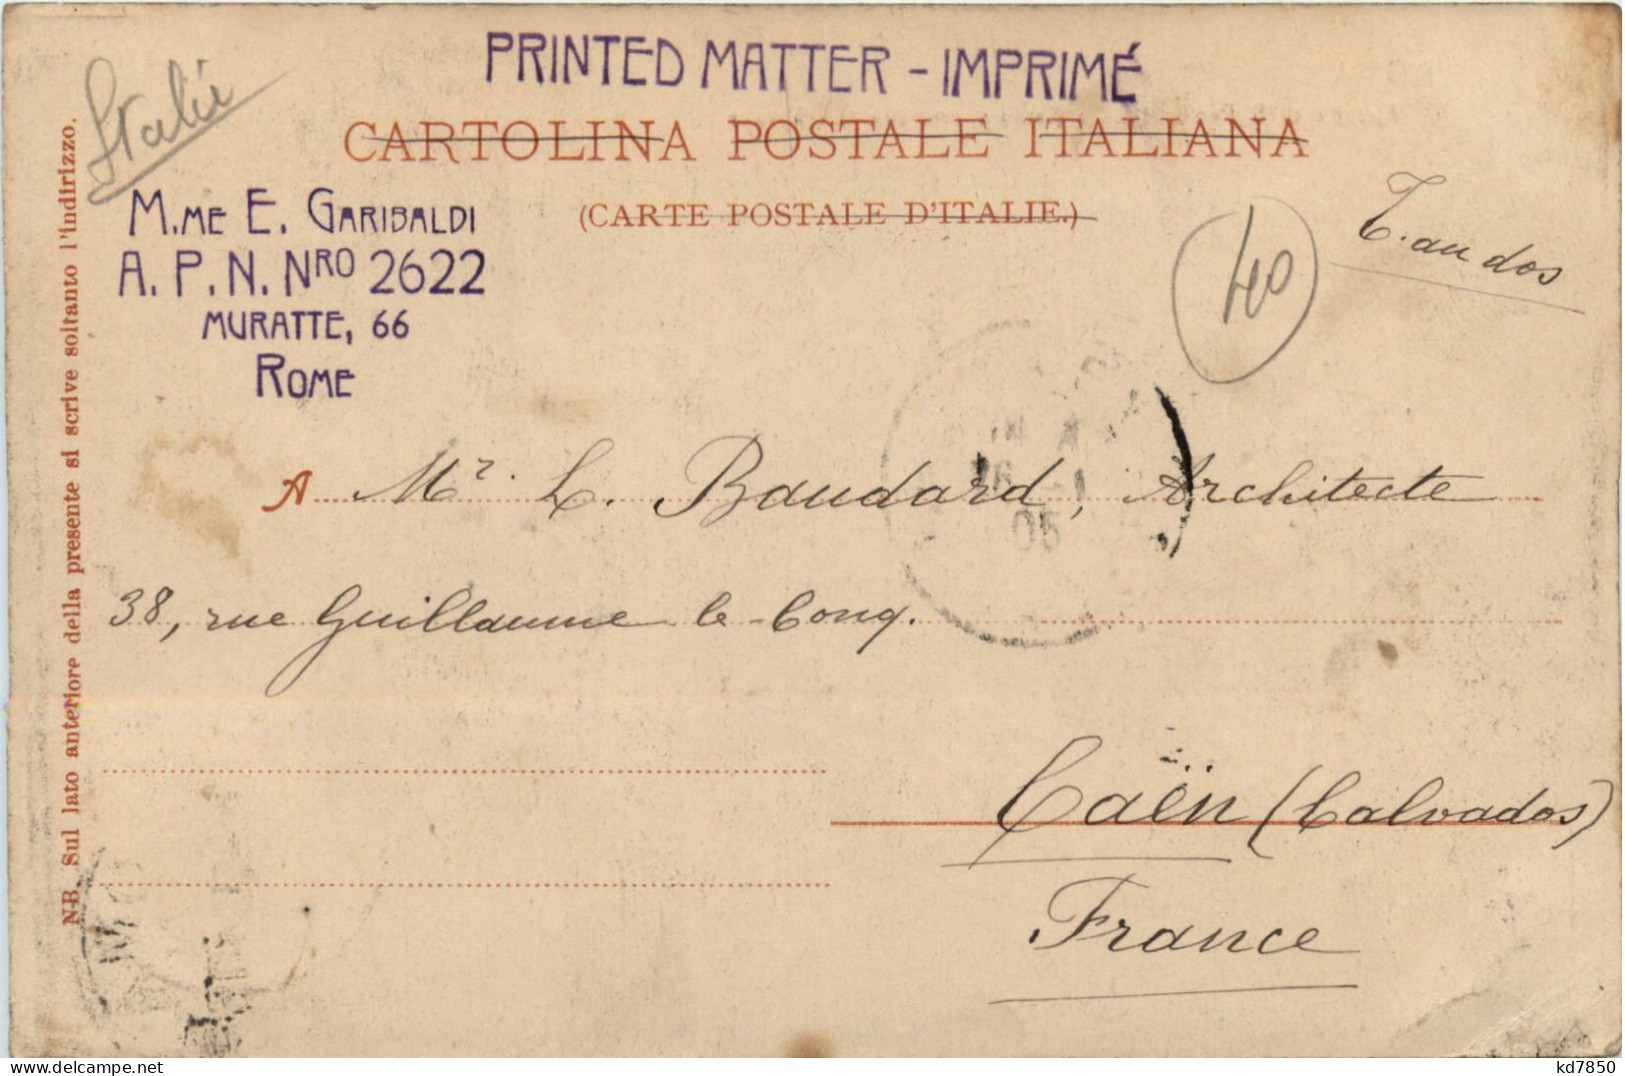 PRINTED MATTER - IMPRIMÉ
Italie
CARTOLINA POSTALE ITALIANA
(CARTE POSTALE D'ITALIE.)
M.ME E. GARIBALDI
A. P. N. NRO 2622
MURATTE, 66
ROME
40
T. au dos
A Mr. L. Baudard, Architecte
05
38, rue Guillaume le Conq.
Caën (Calvados)
France
NB. Sul lato anteriore della presente si scrive soltanto l'indirizzo.
kd7850